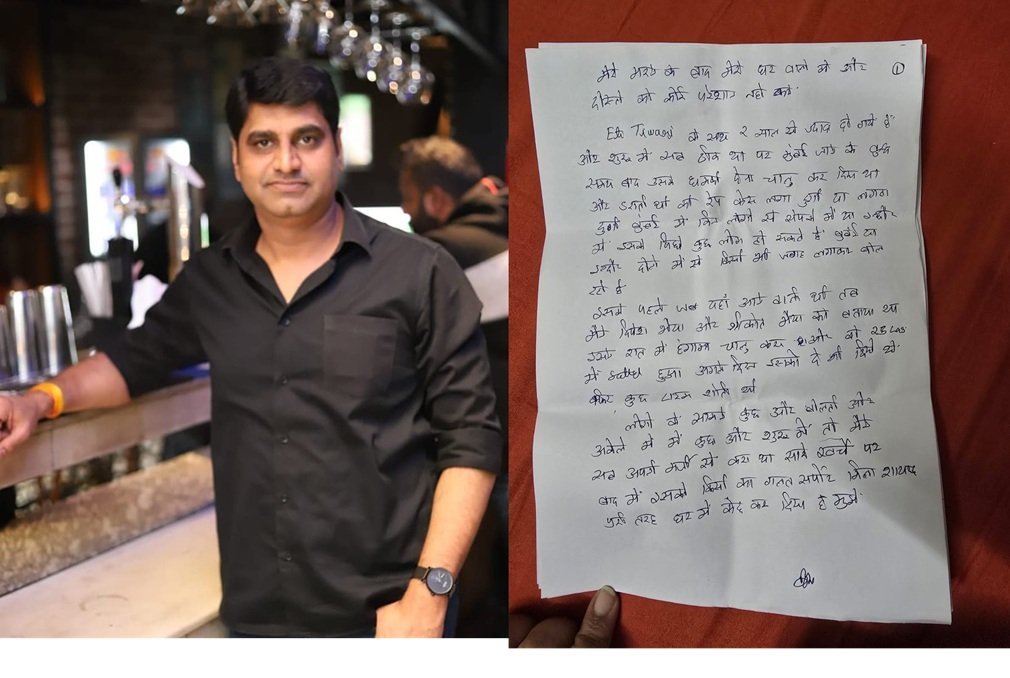 ①
मेरे मरने के बाद मेरे घर वालो को और
दोस्तो को कोई परेशान नही करे.
Ek Tiwari के साथ २ साल से ज्यादा हो गये है
और शुरू में सब ठीक था पर मुंबई जाने के कुछ
समय बाद उसने धमकी देना चालु कर दिया था
और डराती थी की रेप केस लगा दुंगी या लगवा
दुंगी मुंबई में किन लोगो से संपर्क में या इन्दौर
में उसके पिछे कुछ लोग हो सकते है मुंबई या
इन्दौर दोनो में से किसी भी जगह बोल
रहे है
इससे पहले जब यहाँ आने वाली थी तब
मैने भैया और भैया को बताया था
उसने रात में हंगामा चालु करा और वो 25 Lacs
में हुआ अगले दिन उसको दे भी दिये थे
फिर कुछ शांती थी
लोगो के सामने कुछ और बोलती और
अकेले में कुछ और शुरू में तो मैने
सब अपनी मर्जी से करा था सारे खर्चे पर
बाद में उसको किसी का गलत सपोर्ट मिला शायद
पुरी तरह घर में कैद कर दिया है मुझे